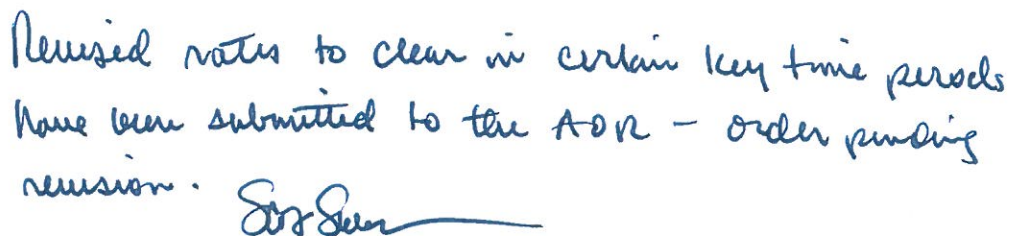 Revised rates to clear in certain key time periods
have been submitted to the AOR - order pending
revision.